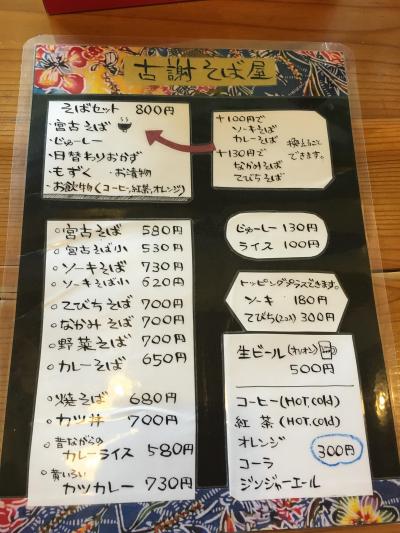 古謝そば屋
そばセット 800円
・宮古そば
・じゅーしー
・日替わりおかず
・もずく ・お漬物
・お飲物(コーヒ,紅茶,オレンジ)
+100円で
ソーキそば
カレーそば
+130円で
なかみそば
てびちそば
換えることできます。
じゅーしー 130円
ライス 100円
トッピングプラスできます。
ソーキ 180円
てびち(2コ) 300円
○宮古そば 580円
○宮古そば小 530円
○ソーキそば 730円
○ソーキそば小 620円
○てびちそば 700円
○なかみそば 700円
○野菜そば 700円
○カレーそば 650円
○焼そば 680円
○カツ丼 700円
○昔ながらの
カレーライス 580円
○黄いろい
カツカレー 730円
生ビール(オリオン)
500円
コーヒー(HOT,cold)
紅茶(HOT,cold)
オレンジ
300円
コーラ
ジンジャーエール